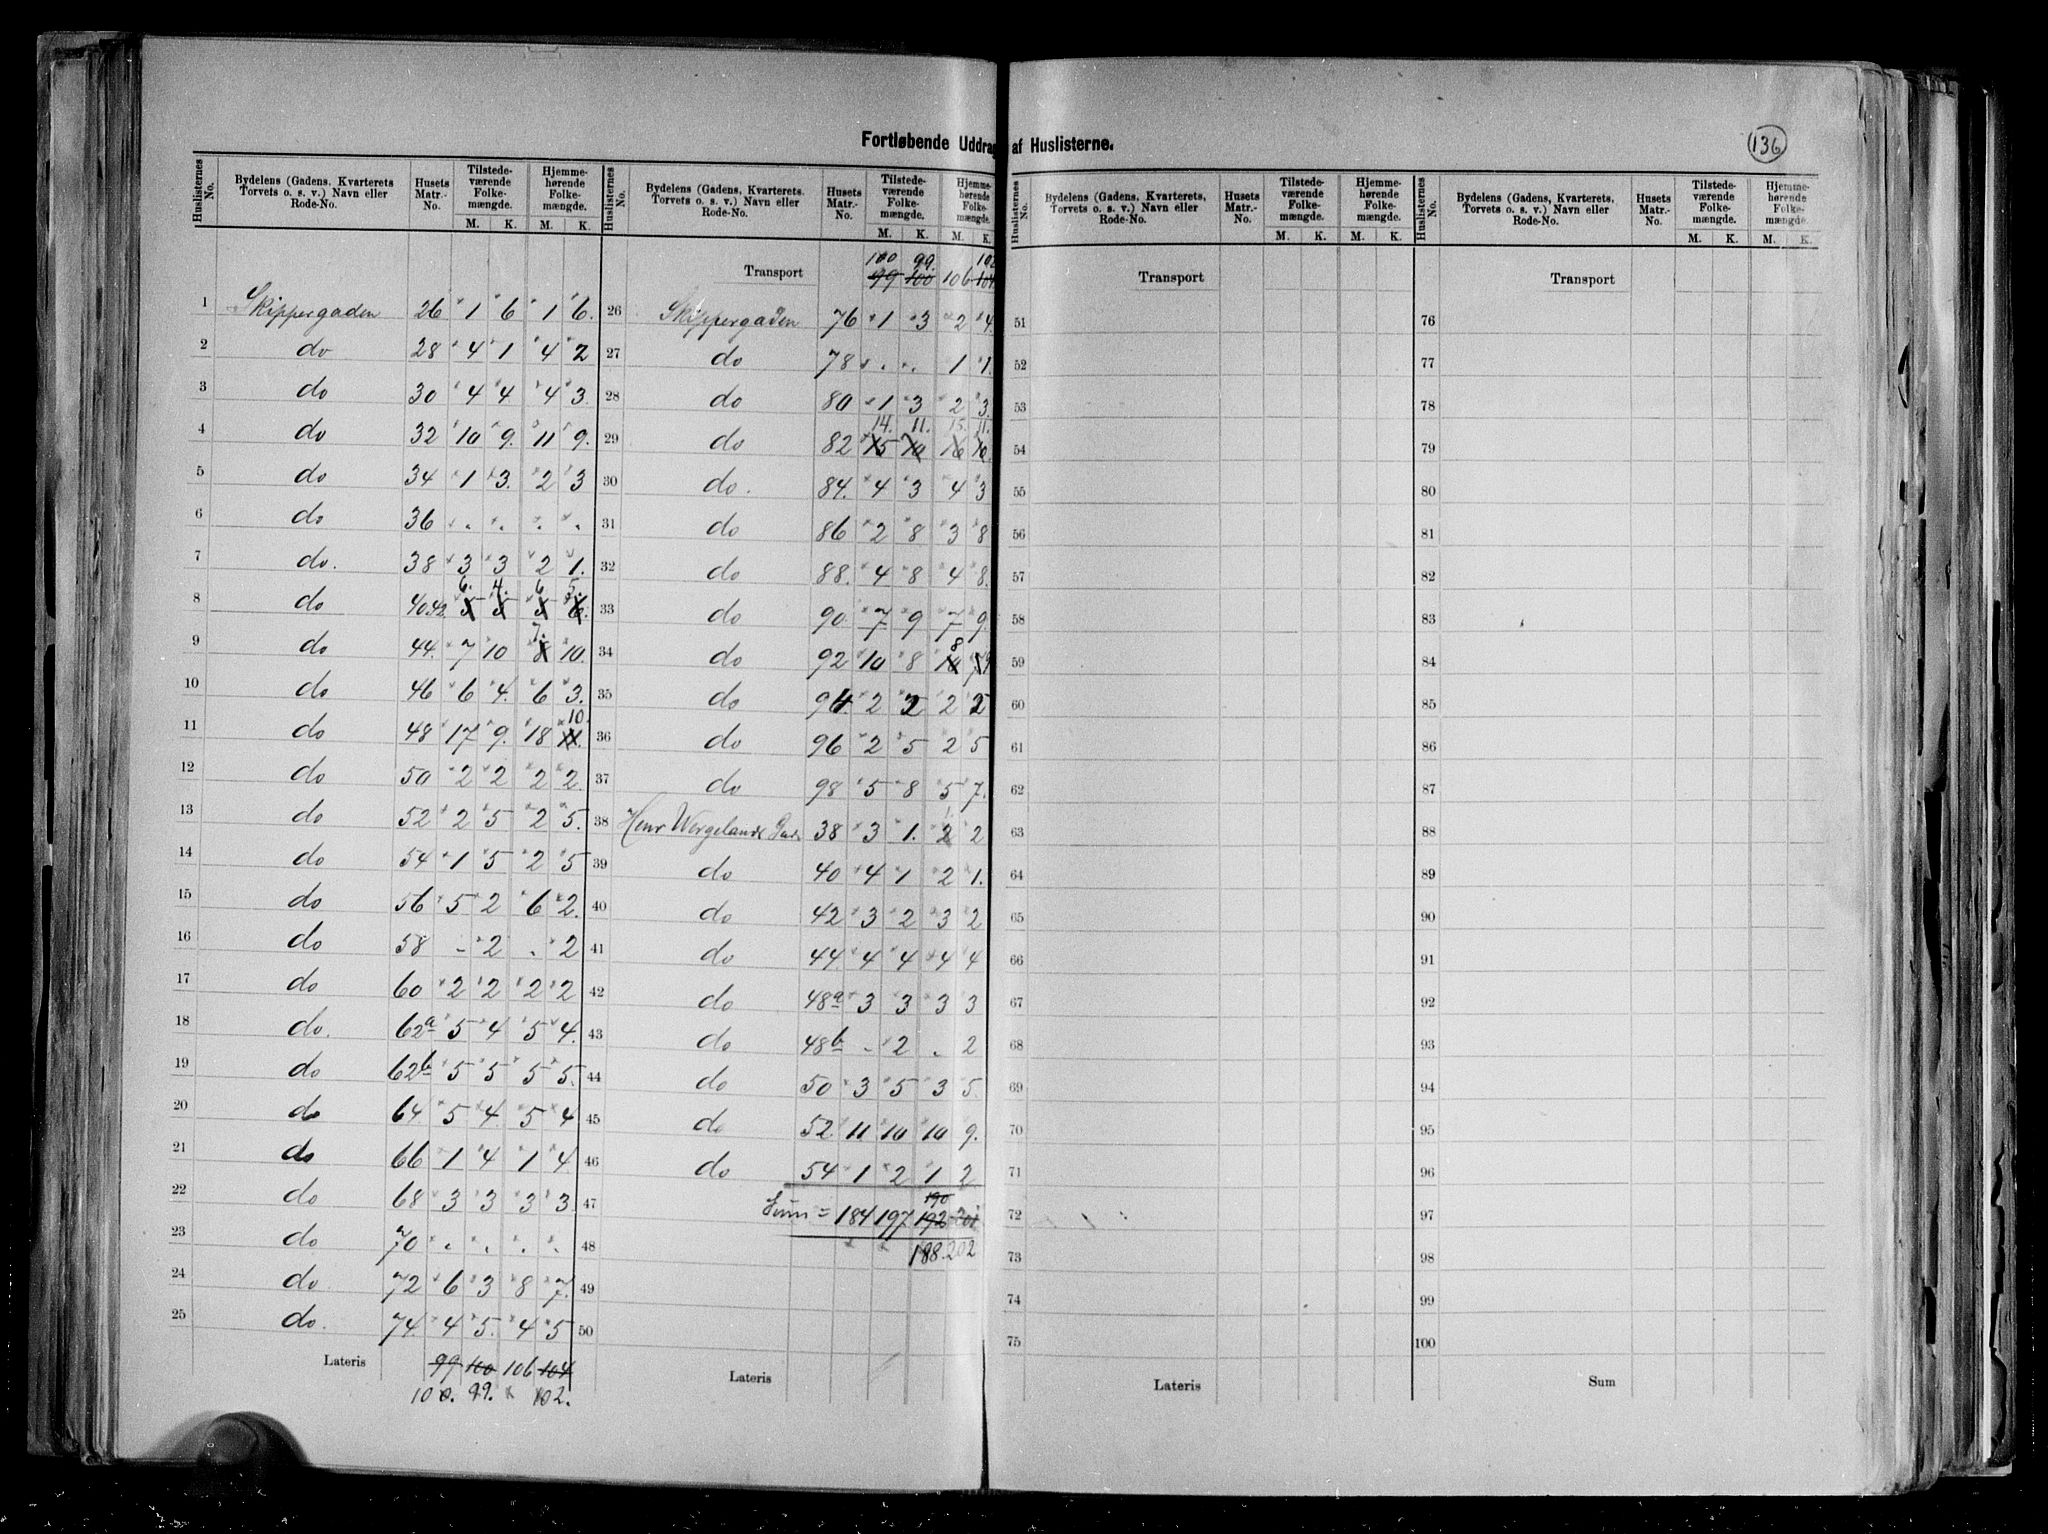 Fortløbende Uddrag af Huslisterne.
136
Huslisternes No. | Bydelens (Gadens, Kvarterets Torvets o. s. v.) Navn eller Rode-No. | Husets Matr.-No. | Tilstedeværende Folkemængde. M. K. | Hjemmehørende Folkemængde. M. K.
1 Skippergaden 26 1 6 1 6.
2 do 28 4 1 4 2
3 do 30 4 4 4 3
4 do 32 10 9. 11 9.
5 do 34 1 3. 2 3
6 do 36 . . . .
7 do. 38 3 3 2 1.
6. 4. 6 5.
8 do 40.42. 5 5 5 6.
7.
9 do 44. 7 10 8 10.
10 do 46 6 4. 6 3.
10.
11 do 48 17 9. 18 11.
12 do 50 2 2 2 2.
13 do 52 2 5 2 5.
14 do 54 1 5 2 5
15 do 56 5 2 6 2.
16 do 58 - 2 . 2
17 do 60 2 2 2 2
18 do. 62a 5 4 5 4.
19 do 62b 5 5 5 5.
20 do 64 5 4. 5 4
21 do 66 1 4 1 4.
22 do 68 3 3 3 3.
23 do 70 . . . .
24 do 72 6 3 8 7.
25 do. 74. 4 5. 4 5
Lateris 99 100 106 104
100. 99. 102.
Huslisternes No. | Bydelens (Gadens, Kvarterets. Torvets o. s. v.) Navn eller Rode-No. | Husets Matr.-No. | Tilstedeværende Folkemængde. M. K. | Hjemmehørende Folkemængde. M. K.
100 99. 102
Transport 99 100 106 104
26 Skippergaden 76 1 3 2 4.
27 do 78 . . 1 1.
28 do 80 1 3 2 3.
14. 11. 15. 11.
29 do 82 15 10 16 10.
30 do. 84. 4 3 4 3
31 do 86 2 8 3 8
32 do 88. 4 8 4 8.
33 do 90. 7 9 7 9.
8
34 do 92 10 8 10 9
35 do 94. 2 2 2 2
36 do 96 2 5 2 5
37 do 98 5 8 5 7.
38 Henr Wergelands Gade 38 3 1. 2 2
39 do 40 4 1 2 1.
40 do 42 3 2 3 2
41 do 44. 4 4 4 4
42 do 48a 3 3 3 3
43 do 48b - 2 . 2
44 do 50 3 5 3 5.
45 do 52. 11 10 10 9.
46 do 54 1 2 1 2
190
47 Sum = 184 197 192 201
48 188. 202
49
50
Lateris
Huslisternes No. | Bydelens (Gadens, Kvarterets, Torvets o. s. v.) Navn eller Rode-No. | Husets Matr.-No. | Tilstedeværende Folkemængde. M. K. | Hjemmehørende Folkemængde. M. K.
Transport
51
52
53
54
55
56
57
58
59
60
61
62
63
64
65
66
67
68
69
70
71
72
73
74
75
Lateris
Huslisternes No. | Bydelens (Gadens, Kvarterets, Torvets o. s. v.) Navn eller Rode-No. | Husets Matr.-No. | Tilstedeværende Folkemængde. M. K. | Hjemmehørende Folkemængde. M. K.
Transport
76
77
78
79
80
81
82
83
84
85
86
87
88
89
90
91
92
93
94
95
96
97
98
99
100
Sum